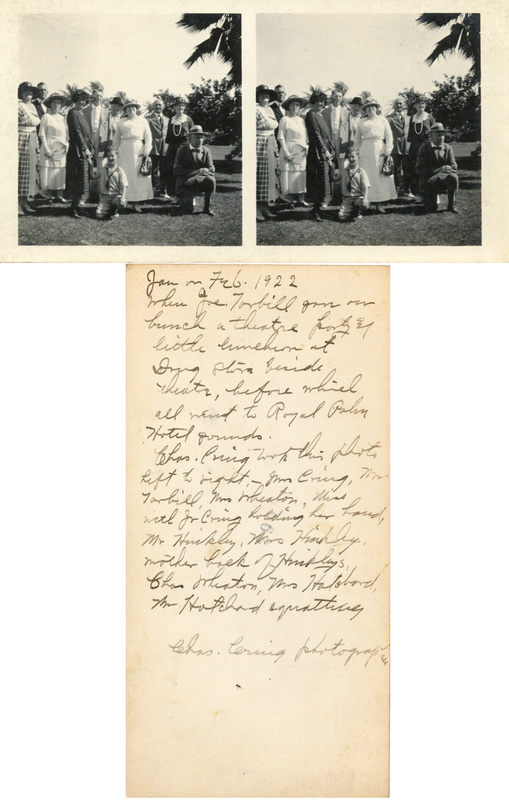 Jan or Feb. 1922
when Joe Torbill gave our
bunch a theatre party &
little luncheon at
Drug store beside
theatre, before which
all went to Royal Palm
Hotel grounds.
Chas. Cring took this photo
Left to right, - Mrs Cring, Mr
Torbill, Mrs Wheaton, Miss
with Jr. Cring holding her hand,
Mr Hinkley, Mrs Hinkley,
mother back of Hinkleys,
Chas Wheaton, Mrs
Mr squatting
Chas. Cring